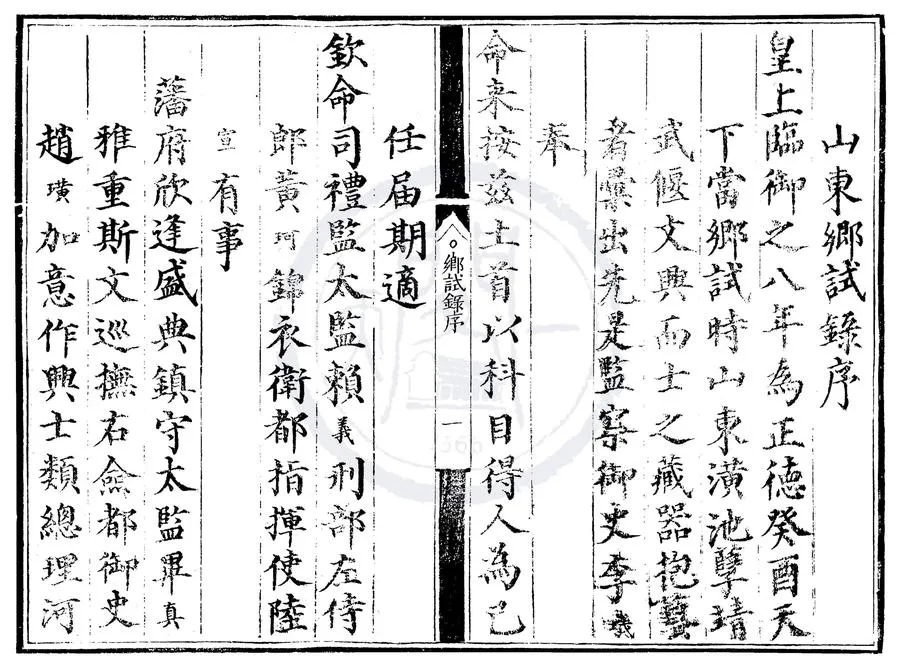 山東鄉試錄序
皇上臨御之八年為正德癸酉天
下當鄉試時山東潢池孽靖
武偃文興而士之藏器抱藝
者彙出先是監察御史李璣
奉
命來按茲土首以科目得人為已
鄉試錄序 一
任屆期適
欽命司禮監太監賴義刑部左侍
郎黃珂錦衣衛都指揮使陸
宣有事
藩府欣逢盛典鎮守太監畢真
雅重斯文巡撫右僉都御史
趙璜加意作興士類總理河